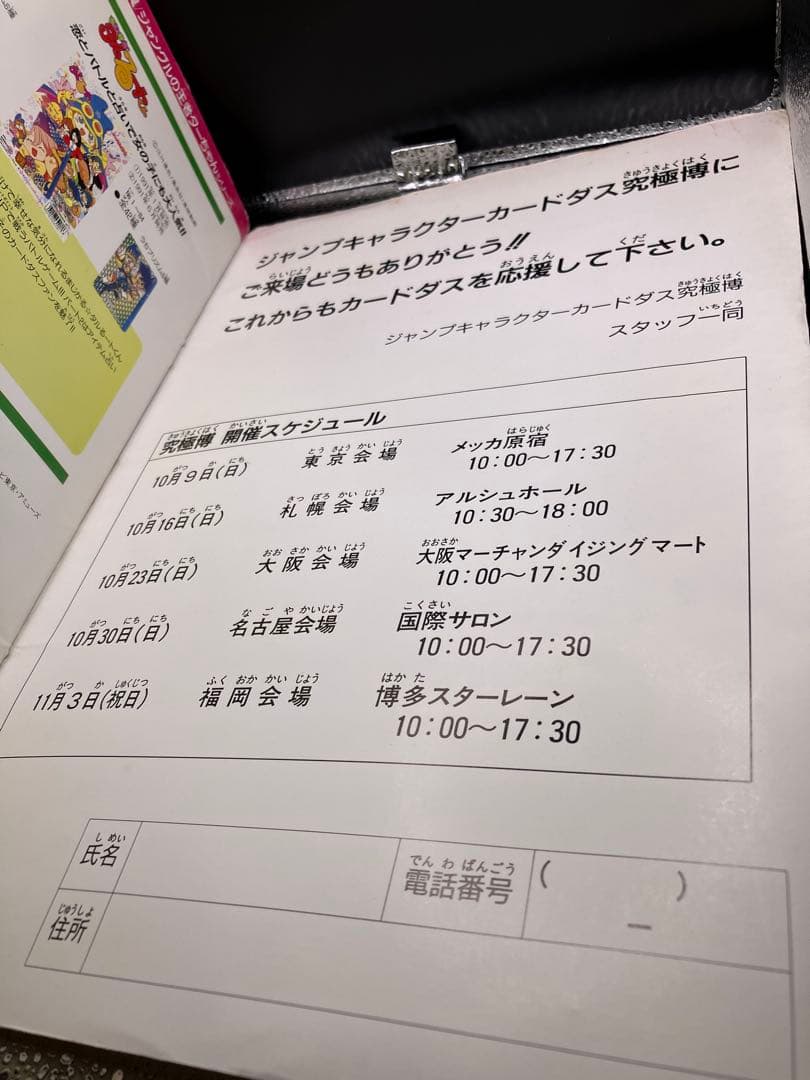 ジャングルの王者ターちゃん
恋とバトルと占いで女の子にも大人気!!
ジャンプキャラクターカードダス究極博に
ご来場どうもありがとう!!
これからもカードダスを応援して下さい。
ジャンプキャラクターカードダス究極博
スタッフ一同
究極博 開催スケジュール
10月9日(日) 東京会場 メッカ原宿
10:00〜17:30
10月16日(日) 札幌会場 アルシュホール
10:30〜18:00
10月23日(日) 大阪会場 大阪マーチャンダイジングマート
10:00〜17:30
10月30日(日) 名古屋会場 国際サロン
10:00〜17:30
11月3日(祝日) 福岡会場 博多スターレーン
10:00〜17:30
氏名 電話番号 ( ) ー
住所